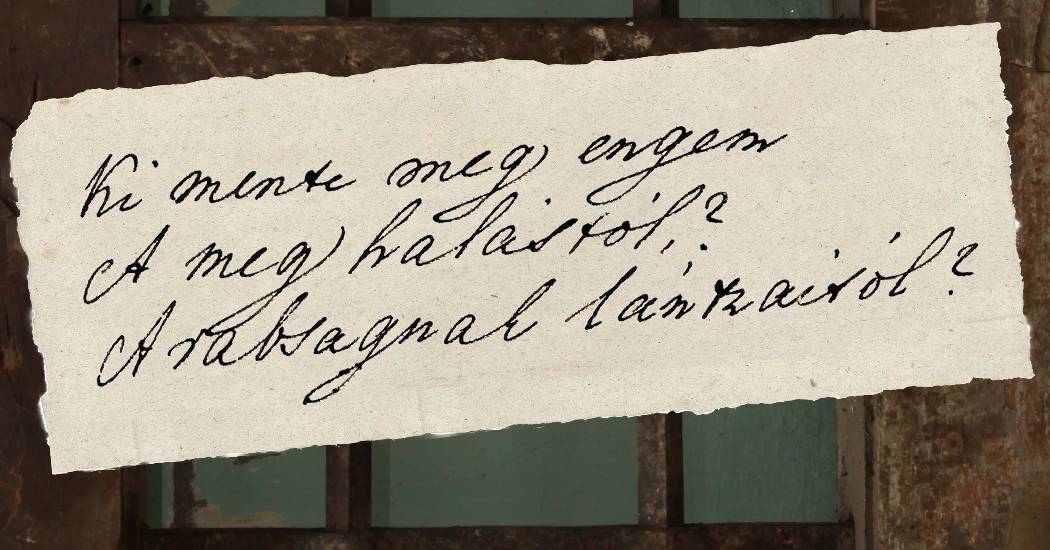 Ki mente meg engem
A meg halástól,?
A rabsagnak lánkaitól?